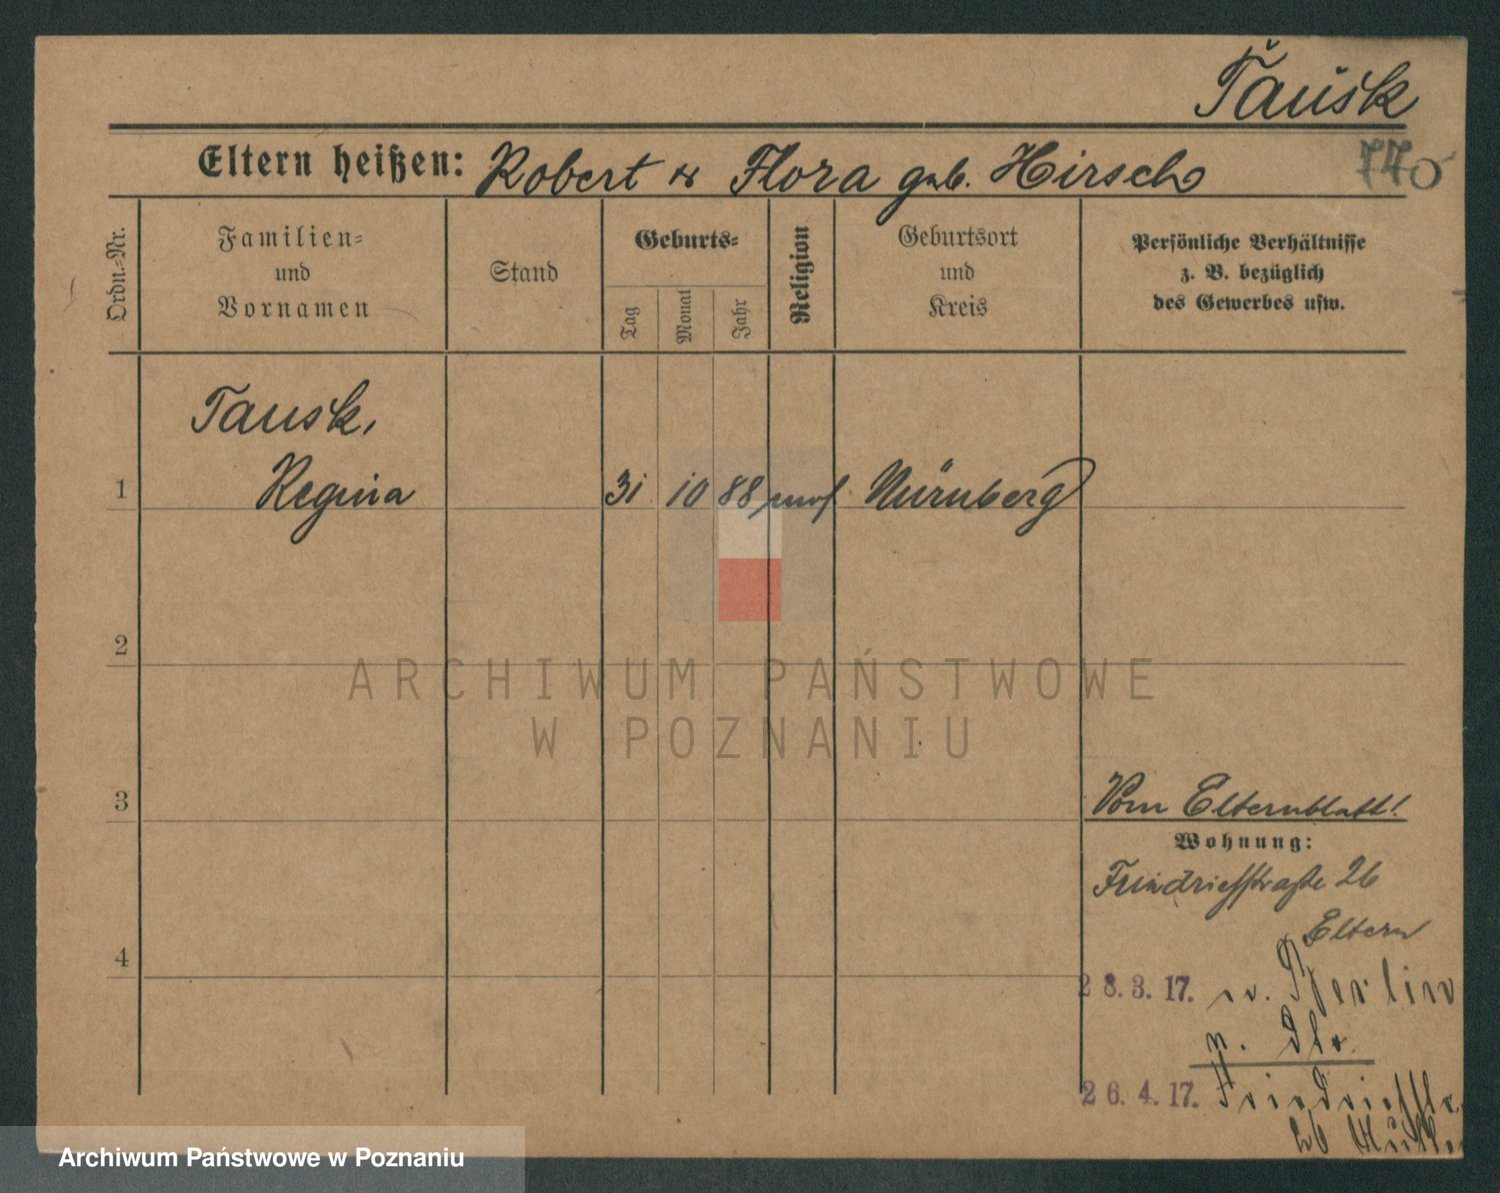 Tausk
Eltern heißen: Robert u Flora geb. Hirsch
770
Ordn.-Nr.
Familien-
und
Vornamen
Stand
Geburts-
Tag
Monat
Jahr
Religion
Geburtsort
und
Kreis
Persönliche Verhältnisse
z. B. bezüglich
des Gewerbes usw.
Tausk,
1 Regina 31 10 88 mos Nürnberg
2
3
4
Vom Elternblatt!
Wohnung:
Friedrichstraße 26
Eltern
28.3.17. v. Berlin
n.
26.4.17. Friedrichstr.
26
ARCHIWUM PAŃSTWOWE
W POZNANIU
Archiwum Państwowe w Poznaniu